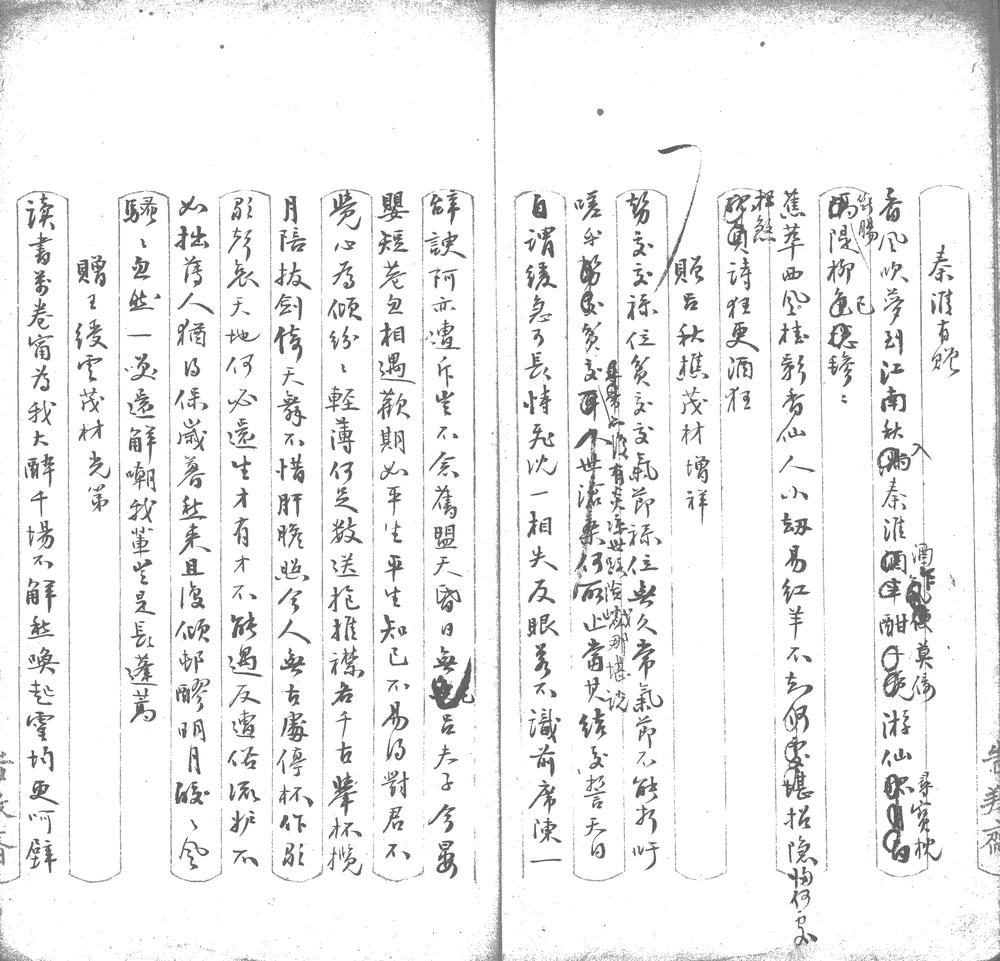 秦淮有贈
香風吹夢到江南秋入秦淮酒半酣莫倚游仙尋寶枕
斷腸隄柳已毿〻
蕉萃西風桂影香仙人小劫易紅羊不知何處堪招隱
愁煞詩狂更酒狂
贈呂秋樵茂材增祥
勢交交祿位貧交交氣節祿位無久常氣節不能折吁
嗟乎貧交世路險巇那堪說何所止當其結交誓天日
自謂緩急可長恃飛沈一相失反眼若不識前席陳一
辭諛阿亦遭斥豈不念舊盟天昏日無色呂夫子今晏
嬰短巷忽相遇歡期如平生平生知己不易得對君不
覺心為傾紛〻輕薄何足數送抱推襟君千古舉杯攬
月陪拔劍倚天舞不惜肝膽照今人無古處停杯作歌
歌聲哀天地何必還生才有才不能遇反遭俗流妒不
如拙薄人猶得保歲暮愁來且復傾郫醪明月皎〻風
騷〻忽然一笑還解嘲我輩豈是長蓬蒿
贈王綬雲茂材光第
读書萬卷甯為我大醉千場不解愁喚起靈均更呵壁